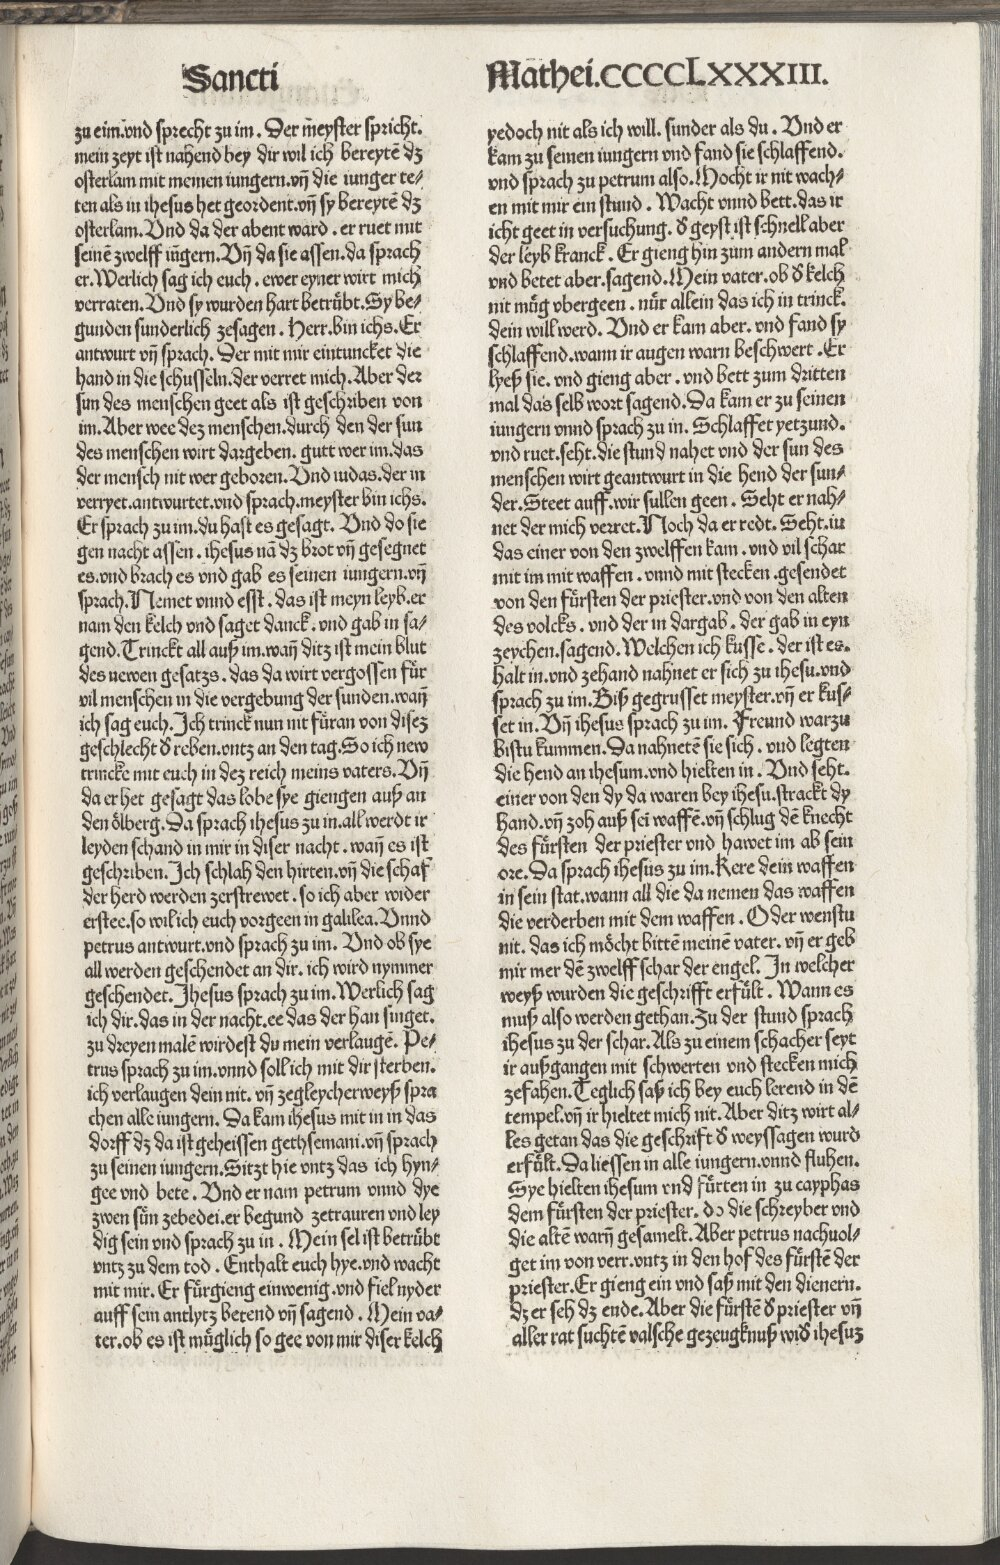 Sancti
zu eim.vnd sprecht zu im. Der meyster spricht.
mein zeyt ist nahend bey dir wil ich bereytẽ dz
osterlam mit meinen iungern.vñ die iunger te⸗
ten als in ihesus het geordent.vñ sy bereytẽ dz
osterlam. Vnd da der abent ward. er ruet mit
seinẽ zwelff iũgern. Vñ da sie assen.da sprach
er. Werlich sag ich euch. ewer eyner wirt mich
verraten. Vnd sy wurden hart betrůbt. Sy be⸗
gunden sunderlich zesagen. Herr.bin ichs. Er
antwurt vñ sprach. Der mit mir eintuncket die
hand in die schusseln.der verret mich. Aber der
sun des menschen geet als ist geschriben von
im. Aber wee dez menschen.durch den der sun
des menschen wirt dargeben. gutt wer im.das
der mensch nit wer geboren. Vnd iudas.der in
verryet.antwurtet.vnd sprach.meyster bin ichs.
Er sprach zu im.du hast es gesagt. Vnd do sie
gen nacht assen. ihesus nã dz brot vñ gesegnet
es.vnd brach es vnd gab es seinen iungern.vñ
sprach. Nemet vnnd esst. das ist meyn leyb.er
nam den kelch vnd saget danck. vnd gab in sa⸗
gend. Trinckt all auß im.wañ ditz ist mein blut
des newen gesatzs. das da wirt vergossen fůr
vil menschen in die vergebung der sunden.wañ
ich sag euch. Ich trinck nun nit fůran von disez
geschlecht ð reben.vntz an den tag. So ich new
trincke mit euch in dez reich meins vaters. Vñ
da er het gesagt das lobe sye giengen auß an
den ôlberg. Da sprach ihesus zu in.all werdt ir
leyden schand in mir in diser nacht. wañ es ist
geschriben. Ich schlah den hirten.vñ die schaf
der herd werden zerstrewet. so ich aber wider
erstee.so wil ich euch vorgeen in galilea. Vnnd
petrus antwurt.vnd sprach zu im. Vnd ob sye
all werden geschendet an dir. ich wird nymmer
geschendet. Ihesus sprach zu im. Werlich sag
ich dir.das in der nacht.ee das der han singet.
zu dreyen malẽ wirdest du mein verlaugẽ. Pe⸗
trus sprach zu im.vnnd soll ich mit dir sterben.
ich verlaugen dein nit. vñ zegleycherweyß spra
chen alle iungern. Da kam ihesus mit in in das
dorff dz da ist geheissen gethsemani.vñ sprach
zu seinen iungern. Sitzt hie vntz das ich hyn⸗
gee vnd bete. Vnd er nam petrum vnnd dye
zwen sůn zebedei.er begund zetrauren vnd ley
dig sein vnd sprach zu in. Mein sel ist betrůbt
vntz zu dem tod. Enthalt euch hye.vnd wacht
mit mir. Er fůrgieng einwenig.vnd fiel nyder
auff sein antlytz betend vñ sagend. Mein va⸗
ter.ob es ist můglich so gee von mir diser kelch
Mathei.CCCCLXXXIII.
yedoch nit als ich will. sunder als du. Vnd er
kam zu seinen iungern vnd fand sie schlaffend.
vnd sprach zu petrum also. Mocht ir nit wach⸗
en mit mir ein stund. Wacht vnnd bett.das ir
icht geet in versuchung. ð geyst ist schnell aber
der leyb kranck. Er gieng hin zum andern mal
vnd betet aber.sagend. Mein vater.ob ð kelch
nit můg vbergeen. nůr allein das ich in trinck.
dein will werd. Vnd er kam aber. vnd fand sy
schlaffend.wann ir augen warn beschwert. Er
lyeß sie. vnd gieng aber. vnd bett zum dritten
mal das selb wort sagend. Da kam er zu seinen
iungern vnnd sprach zu in. Schlaffet yetzund.
vnd ruet.seht.die stund nahet vnd der sun des
menschen wirt geantwurt in die hend der sun⸗
der. Steet auff.wir sullen geen. Seht er nah⸗
net der mich verret. Noch da er redt. Seht.iu
das einer von den zwelffen kam. vnd vil schar
mit im mit waffen. vnnd mit stecken.gesendet
von den fůrsten der priester.vnd von den alten
des volcks. vnd der in dargab. der gab in eyn
zeychen.sagend. Welchen ich kusse. der ist es.
halt in.vnd zehand nahnet er sich zu ihesu.vnd
sprach zu im. Biß gegrusset meyster.vñ er kus⸗
set in. Vñ ihesus sprach zu im. Freund warzu
bistu kummen. Da nahnetẽ sie sich. vnd legten
die hend an ihesum.vnd hielten in. Vnd seht.
einer von den dy da waren bey ihesu.strackt dy
hand.vñ zoh auß sei waffẽ.vñ schlug dẽ knecht
des fůrsten der priester vnd hawet im ab sein
ore. Da sprach ihesus zu im. Kere dein waffen
in sein stat.wann all die da nemen das waffen
die verderben mit dem waffen. Oder wenstu
nit. das ich môcht bittẽ meinẽ vater. vñ er geb
mir mer dẽ zwelff schar der engel. In welcher
weyß wurden die geschrifft erfůlt. Wann es
muß also werden gethan. Zu der stund sprach
ihesus zu der schar. Als zu einem schacher seyt
ir außgangen mit schwerten vnd stecken mich
zefahen. Teglich saß ich bey euch lerend in dẽ
tempel.vñ ir hieltet mich nit. Aber ditz wirt al⸗
les getan das die geschrift ð weyssagen wurd
erfůlt. Da liessen in alle iungern.vnnd fluhen.
Sye hielten ihesum vnd fůrten in zu cayphas
dem fůrsten der priester. do die schreyber vnd
die altẽ warñ gesamelt. Aber petrus nachuol⸗
get im von verr.vntz in den hof des fůrstẽ der
priester. Er gieng ein vnd saß mit den dienern.
dz er seh dz ende. Aber die fůrstẽ ð priester vñ
aller rat suchtẽ valsche gezeugknuß wið ihesuz